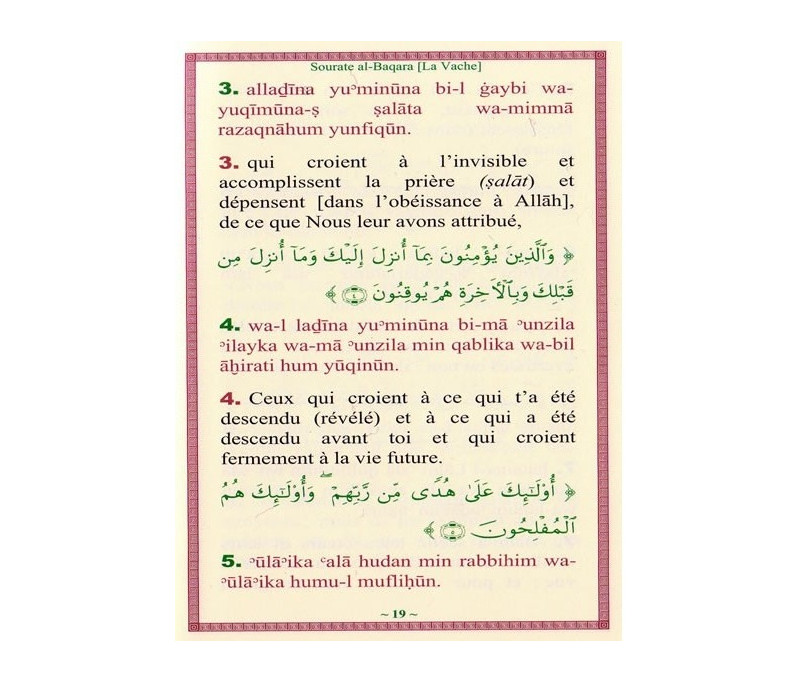 Sourate al-Baqara [La Vache]
3. allaḏīna yuʾminūna bi-l ġaybi wa-
yuqīmūna-ṣ ṣalāta wa-mimmā
razaqnāhum yunfiqūn.
3. qui croient à l’invisible et
accomplissent la prière (ṣalāt) et
dépensent [dans l’obéissance à Allāh],
de ce que Nous leur avons attribué,
﴿ وَٱلَّذِينَ يُؤْمِنُونَ بِمَآ أُنزِلَ إِلَيْكَ وَمَآ أُنزِلَ مِن
قَبْلِكَ وَبِٱلْأَخِرَةِ هُمْ يُوقِنُونَ ٤ ﴾
4. wa-l laḏīna yuʾminūna bi-mā ʾunzila
ʾilayka wa-mā ʾunzila min qablika wa-bil
āḫirati hum yūqinūn.
4. Ceux qui croient à ce qui t’a été
descendu (révélé) et à ce qui a été
descendu avant toi et qui croient
fermement à la vie future.
﴿ أُوْلَـٰٓئِكَ عَلَىٰ هُدًى مِّن رَّبِّهِمْ ۖ وَأُوْلَـٰٓئِكَ هُمُ
ٱلْمُفْلِحُونَ ٥ ﴾
5. ʾūlāʾika ʿalā hudan min rabbihim wa-
ʾūlāʾika humu-l mufliḥūn.
~ 19 ~